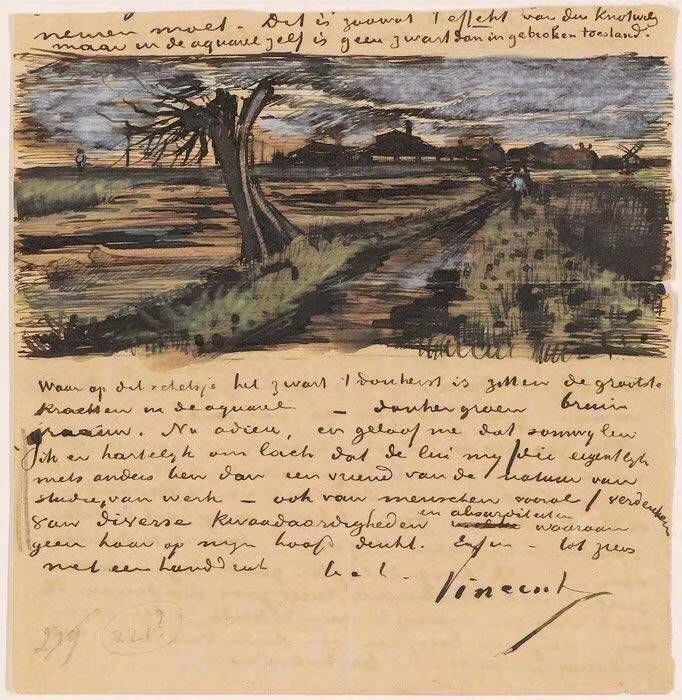 nemen moet. Dit is zoowat 't effekt van den Knotwilg
maar in de aquarel zelf is geen zwart dan in gebroken toestand.
Waar op dit schetsje het zwart 't donkerst is zitten de grootste
krachten in de aquarel – donkergroen bruin
graauw. Nu adieu, en geloof me dat somwylen
ik er hartelyk om lach dat de lui my (die eigentlyk
niets anders ben dan een vriend van de natuur van
studie, van werk – ook van menschen vooral) verdenken
van diverse kwaadaardigheden en absurditeiten waaraan
geen haar op myn hoofd denkt. Enfin – tot ziens
met een handdruk b. à t.
Vincent
219 221?